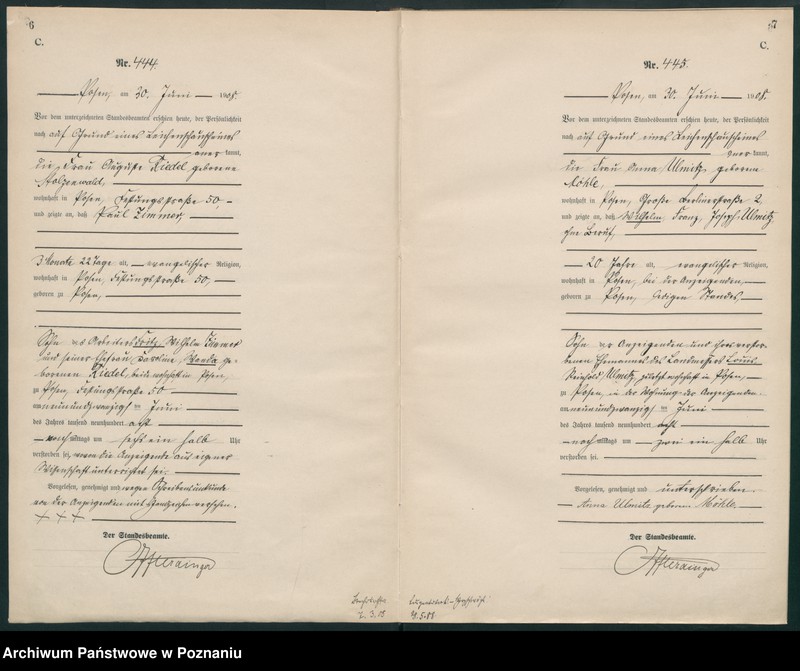 6
C.
Nr. 444.
Posen, am 30. Juni 1908.
Vor dem unterzeichneten Standesbeamten erschien heute, der Persönlichkeit
nach auf Grund eines Leichenschauscheines
anerkannt,
die Frau Auguste Riedel geborene
Stolzenwald,
wohnhaft in Posen, Festungsstraße 50,
und zeigte an, daß Paul Zimmer,
3 Monate 22 Tage alt, evangelischer Religion,
wohnhaft in Posen, Festungsstraße 50,
geboren zu Posen,
Sohn des Arbeiters Fritz Wilhelm Zimmer
und seiner Ehefrau, Karoline Wanda ge-
borenen Riedel, beide wohnhaft in Posen,
zu Posen, Festungsstraße 50
am neunundzwanzigsten Juni
des Jahres tausend neunhundert acht
nachmittags um sechs ein halb Uhr
verstorben sei, wovon die Anzeigende aus eigener
Wissenschaft unterrichtet sei.
Vorgelesen, genehmigt und wegen Schreibensunkunde
von der Anzeigenden mit Handzeichen versehen.
+ + +
Der Standesbeamte.
7
C.
Nr. 445.
Posen, am 30. Juni 1908.
Vor dem unterzeichneten Standesbeamten erschien heute, der Persönlichkeit
nach auf Grund eines Leichenschauscheines
anerkannt,
die Frau Anna Ulmitz, geborene
Möhle,
wohnhaft in Posen, Große Berlinerstraße 2,
und zeigte an, daß Wilhelm, Franz, Joseph Ulmitz
ohne Beruf,
20 Jahre alt, evangelischer Religion,
wohnhaft in Posen, bei der Anzeigenden,
geboren zu Posen, ledigen Standes,
Sohn der Anzeigenden und ihres verstor-
benen Ehemannes des Landmessers Louis
Reinhold Ulmitz, zuletzt wohnhaft in Posen,
zu Posen, in der Wohnung der Anzeigenden
am neunundzwanzigsten Juni
des Jahres tausend neunhundert acht
nachmittags um zwei ein halb Uhr
verstorben sei.
Vorgelesen, genehmigt und unterschrieben
Anna Ulmitz geborene Möhle.
Der Standesbeamte.
Archiwum Państwowe w Poznaniu